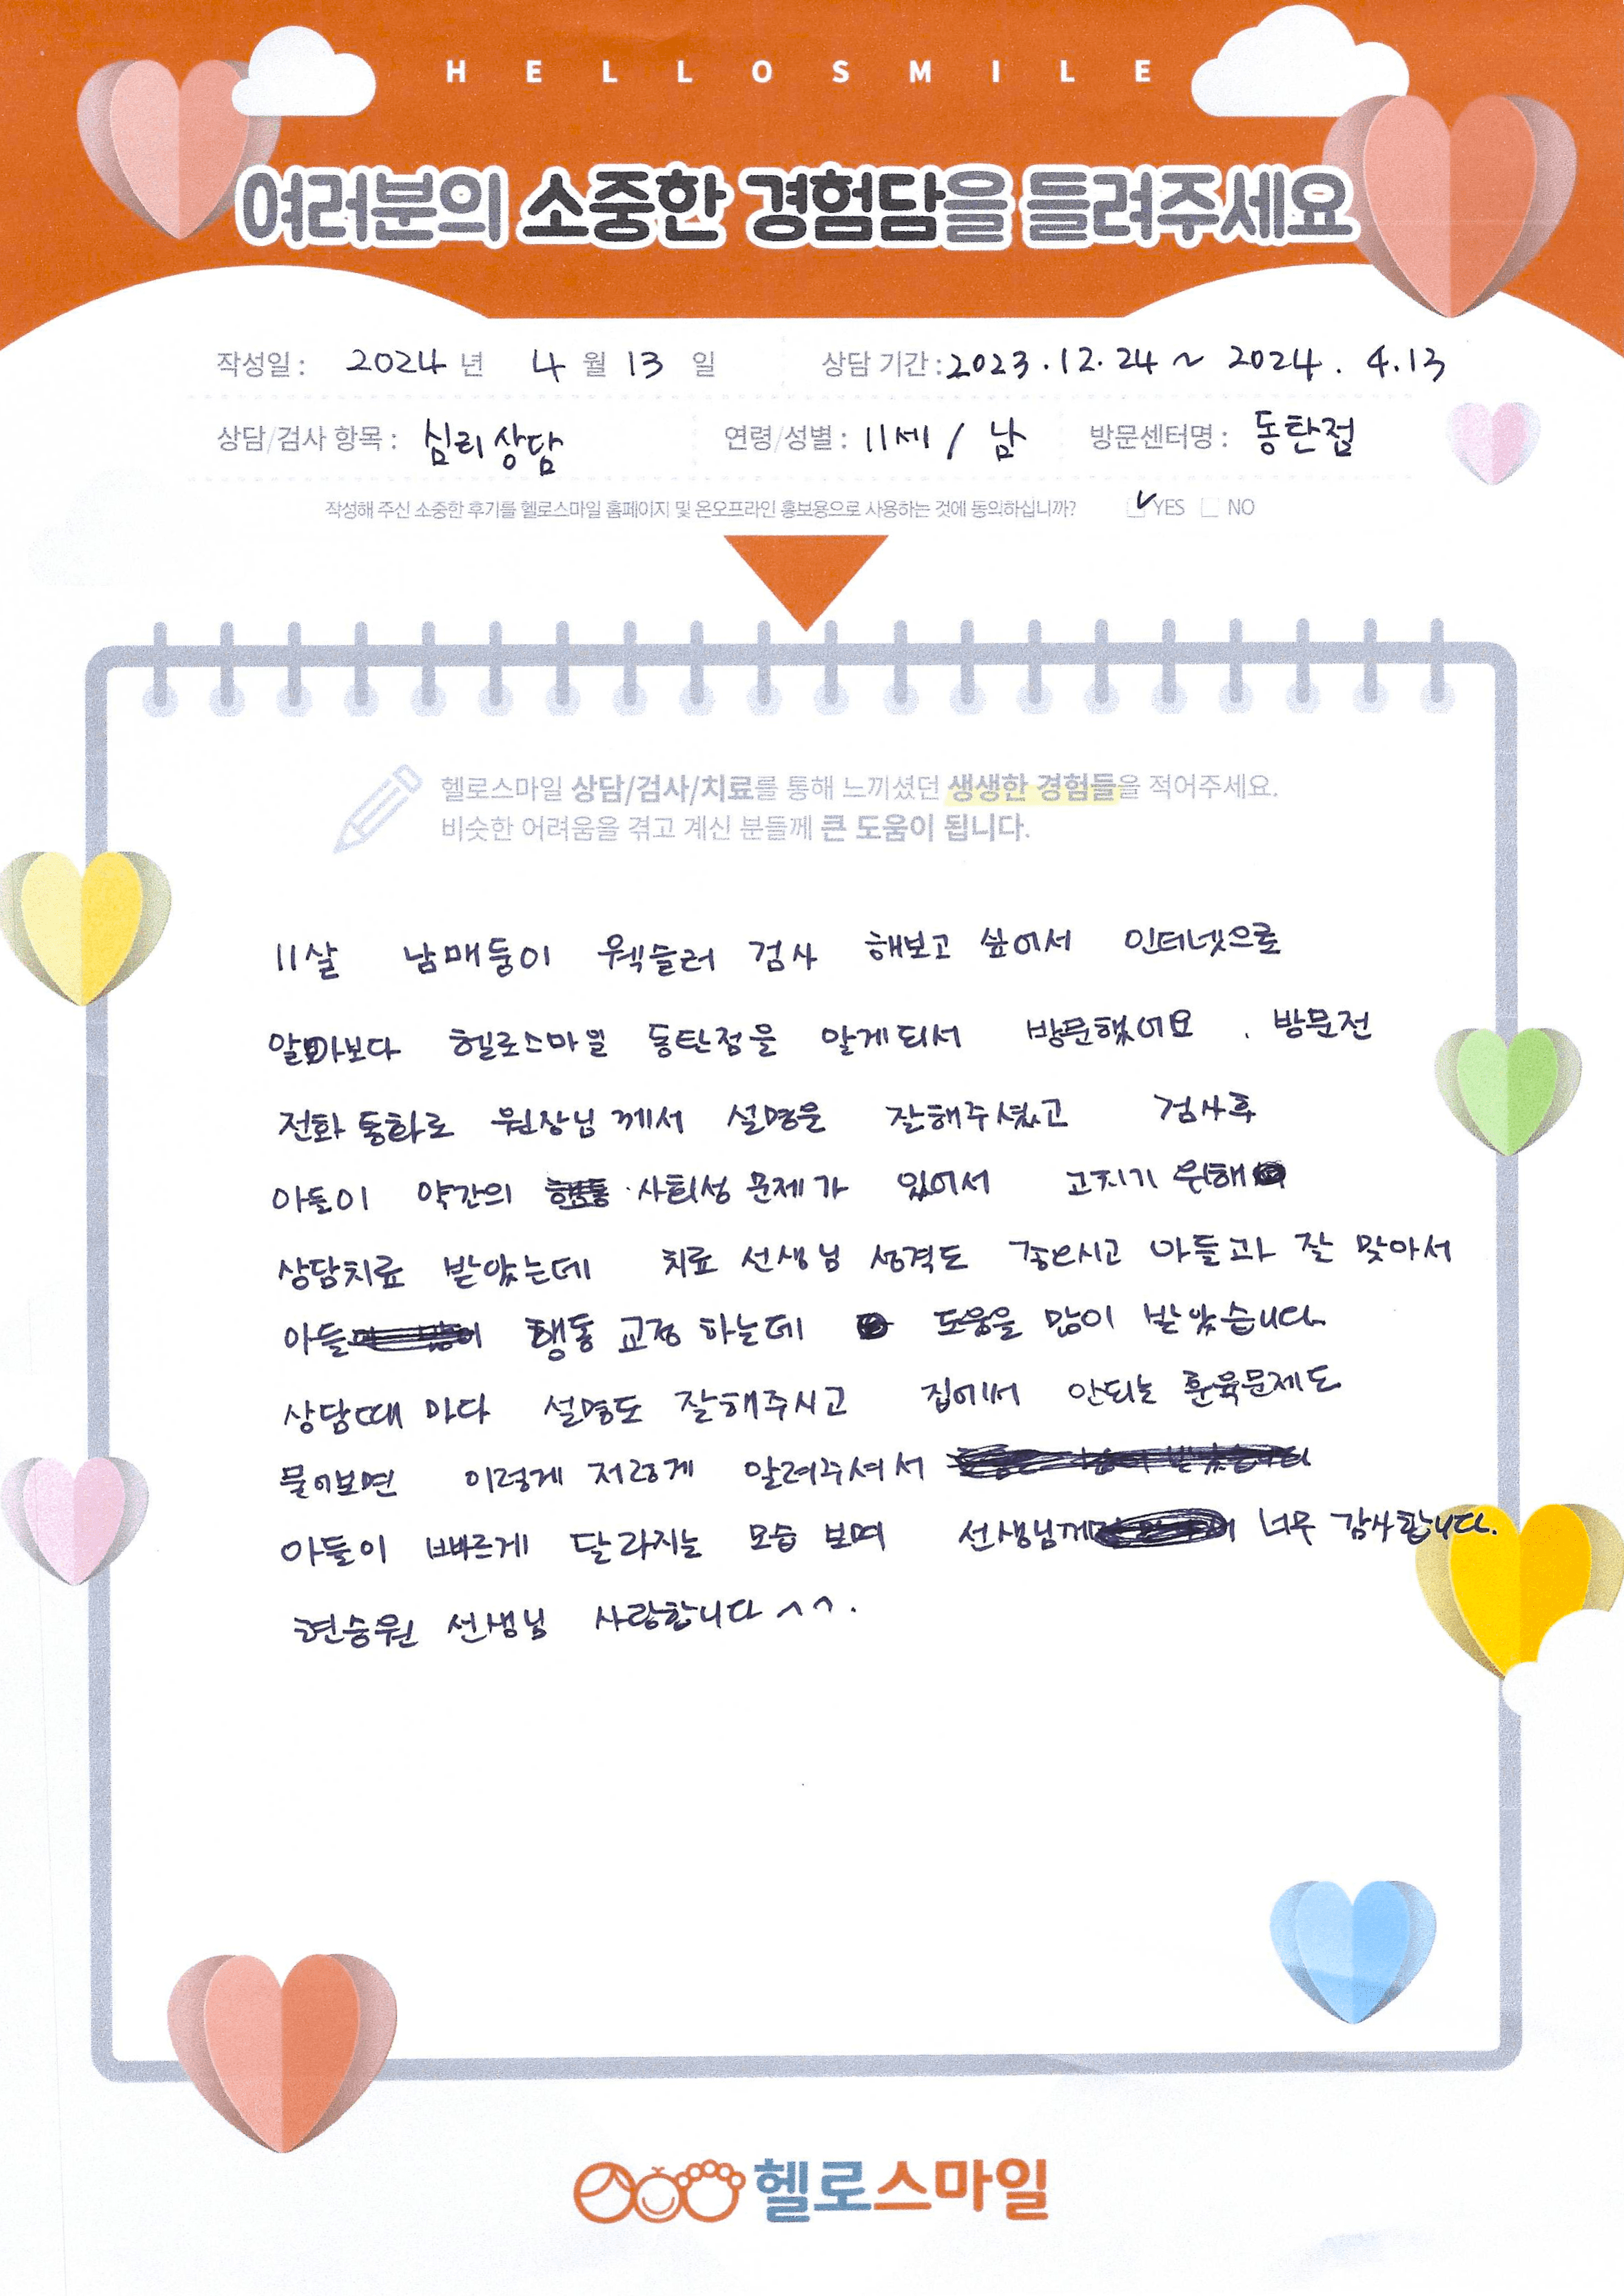 HELLOSMILE
여러분의 소중한 경험담을 들려주세요
작성일 : 2024 년 4 월 13 일 상담 기간 : 2023.12.24 ~ 2024. 4.13
상담/검사 항목 : 심리상담 연령/성별 : 11세 / 남 방문센터명 : 동탄점
작성해 주신 소중한 후기를 헬로스마일 홈페이지 및 온오프라인 홍보용으로 사용하는 것에 동의하십니까? YES NO
헬로스마일 상담/검사/치료를 통해 느끼셨던 생생한 경험들을 적어주세요.
비슷한 어려움을 겪고 계신 분들께 큰 도움이 됩니다.
11살 남매둥이 웩슬러 검사 해보고 싶어서 인터넷으로
알아보다 헬로스마일 동탄점을 알게되서 방문했어요. 방문전
전화 통화로 원장님 께서 설명을 잘해주셨고 검사후
아들이 약간의 사회성 문제가 있어서 고치기 위해
상담치료 받았는데 치료 선생님 성격도 좋으시고 아들과 잘 맞아서
아들 행동 교정 하는데 도움을 많이 받았습니다.
상담때 마다 설명도 잘해주시고 집에서 안되는 훈육문제도
물어보면 이렇게 저렇게 알려주셔서
아들이 빠르게 달라지는 모습 보며 선생님께 너무 감사합니다.
현승원 선생님 사랑합니다 ^^.
헬로스마일